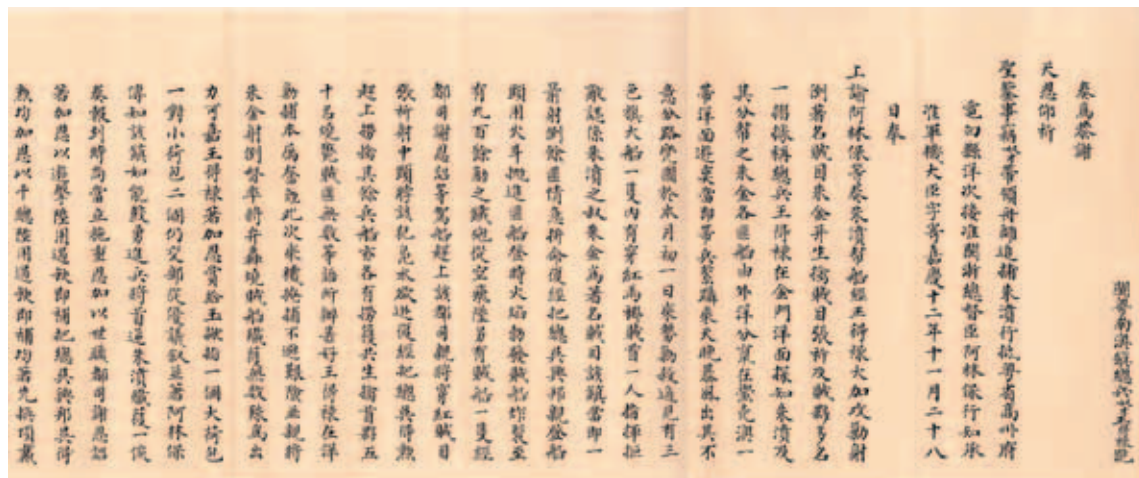 閩粵南澳鎮總兵官王得祿跪
奏為恭謝
天恩仰祈
聖鑒事竊奴才帶領舟師追捕朱濆行抵粵省高州府
電白縣洋次接准閩浙總督臣阿林保行知承
准軍機大臣字寄嘉慶十二年十一月二十八
日奉
上諭阿林保等奏朱濆幫船經王得祿大加攻勦射
倒著名賊目朱金并生擒賊目張祈及賊夥多名
一摺據稱總兵王得祿在金門洋面探知朱濆及
其分幫之朱金各匪船由外洋分竄在崇武澳一
帶洋面遊奕當即帶兵緊躡乘天晚暴風出其不
意分路突圍於本月初一日乘勢勦殺適見有三
色旗大船一隻內有穿紅馬褂賊首一人指揮拒
敵認係朱濆之叔朱金為著名賊目該鎮當即一
箭射倒餘匪情急拚命復經把總吳興邦親登船
頭用火斗拋進匪船登時火焰勃發賊船炸裂至
有九百餘觔之賊砲從空飛墜另有賊船一隻經
都司謝恩詔等駕船趕上該都司親將穿紅賊目
張祈射中頸脖該犯鳧水欲逃復經把總吳得勲
趕上撈擒其餘兵船亦各有撈獲共生擒首夥五
十名燒斃賊匪無數等語所辦甚好王得祿在洋
勤捕本屬奮勉此次乘機掩捕不避艱險並親將
朱金射倒督率將弁轟燒賊船殲獲無數殊為出
力可嘉王得祿著加恩賞給玉搬指一個大荷包
一對小荷包二個仍交部從優議敘並著阿林保
傳知該鎮如能鼓勇進兵將首逆朱濆殲獲一俟
奏報到時尚當立施重恩加以世職都司謝恩詔
著加恩以遊擊陞用遇缺即補把總吳興邦吳得
勲均加恩以千總陞用遇缺即補均著先換頂戴